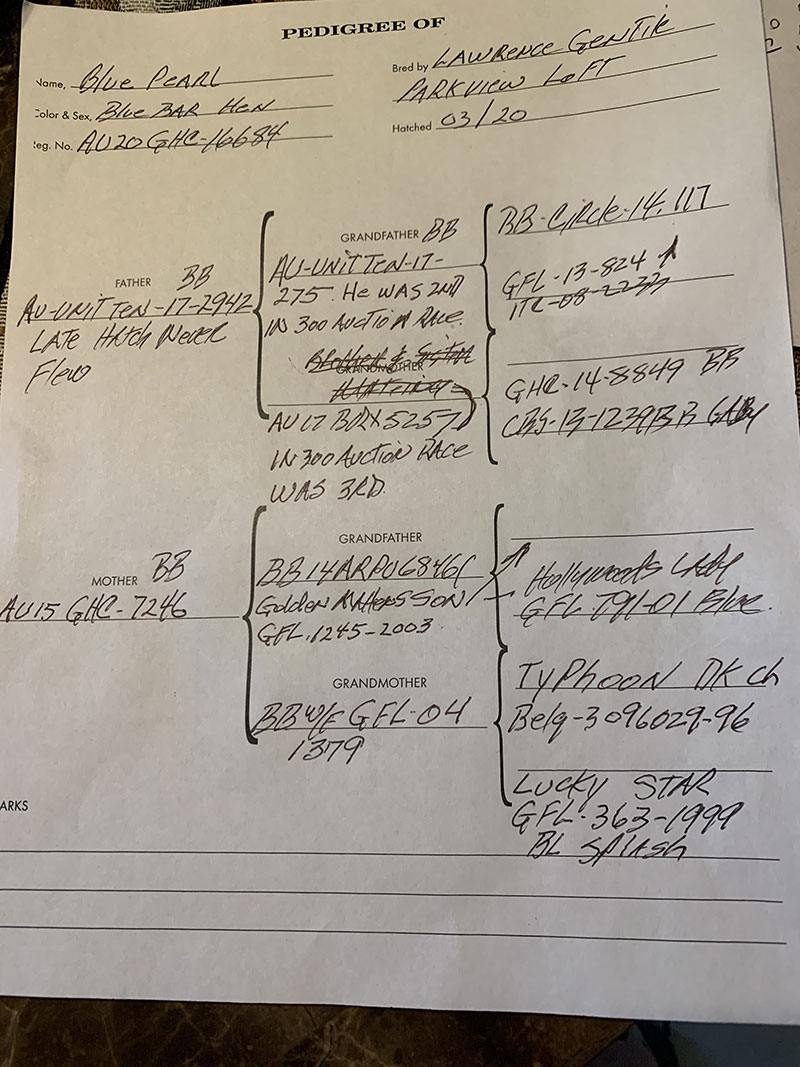 PEDIGREE OF
Name, Blue Pearl
Color & Sex, Blue BAR Hen
Reg. No. AU20 GHC-16684
Bred by LAWRENCE GENTILE
PARKVIEW LOFT
Hatched 03/20
FATHER BB
AU-UNIT TEN-17-2942
LATE HAtch Never
Flew
GRANDFATHER BB
AU-UNIT TEN-17-
275. He WAS 2ND
IN 300 AUCTION RACE.
GRANDMOTHER
AU 17 BOX 5257
IN 300 AUCTION RACE
WAS 3RD.
BB-CIRCLE-14.117
GFL-13-824
ITC-08-2233
GHC-14-8849 BB
MOTHER BB
AU15 GHC-7246
GRANDFATHER
BB 14 ARPU 6846
Golden
GFL.1245-2003
GRANDMOTHER
BB W/F GFL-04
1379
Hollywoods LADY
GFL 791-01 Blue.
TyPHOON DK ch
Belg-3096029-96
LUCKY STAR
GFL-363-1999
BL SPLASH
ARKS